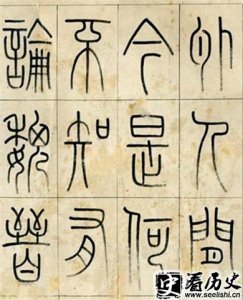 外人間
今是何
不知有
論魏晉
看历史
www.seelishi.cn